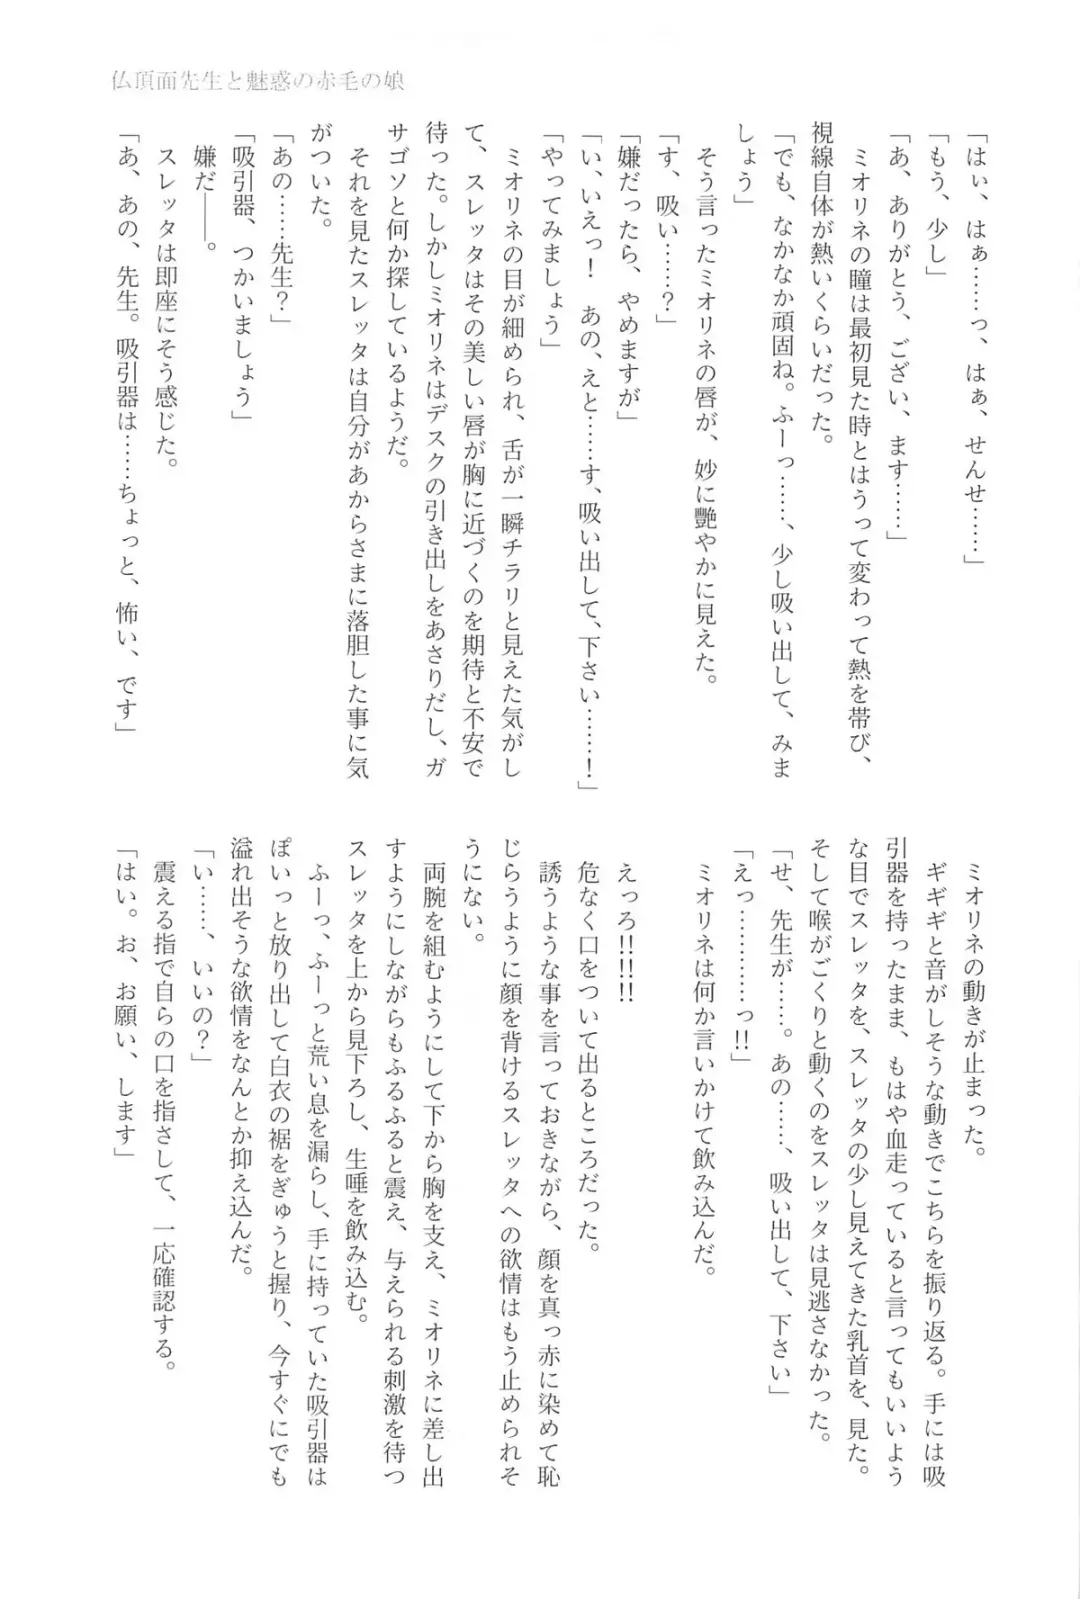 仏頂面先生と魅惑の赤毛の娘
「はぃ、はぁ……っ、はぁ、せんせ……」
「もう、少し」
「あ、ありがとう、ござい、ます……」
　ミオリネの瞳は最初見た時とはうって変わって熱を帯び、
視線自体が熱いくらいだった。
「でも、なかなか頑固ね。ふーっ……、少し吸い出して、みま
しょう」
　そう言ったミオリネの唇が、妙に艶やかに見えた。
「す、吸い……？」
「嫌だったら、やめますが」
「い、いえっ！　あの、えと……す、吸い出して、下さい……！」
「やってみましょう」
　ミオリネの目が細められ、舌が一瞬チラリと見えた気がし
て、スレッタはその美しい唇が胸に近づくのを期待と不安で
待った。しかしミオリネはデスクの引き出しをあさりだし、ガ
サゴソと何か探しているようだ。
　それを見たスレッタは自分があからさまに落胆した事に気
がついた。
「あの……先生？」
「吸引器、つかいましょう」
　嫌だ――。
　スレッタは即座にそう感じた。
「あ、あの、先生。吸引器は……ちょっと、怖い、です」
　ミオリネの動きが止まった。
　ギギギと音がしそうな動きでこちらを振り返る。手には吸
引器を持ったまま、もはや血走っていると言ってもいいよう
な目でスレッタを、スレッタの少し見えてきた乳首を、見た。
そして喉がごくりと動くのをスレッタは見逃さなかった。
「せ、先生が……。あの……、吸い出して、下さい」
「えっ…………っ!!」
　ミオリネは何か言いかけて飲み込んだ。
　えっろ!!!!
　危なく口をついて出るところだった。
　誘うような事を言っておきながら、顔を真っ赤に染めて恥
じらうように顔を背けるスレッタへの欲情はもう止められそ
うにない。
　両腕を組むようにして下から胸を支え、ミオリネに差し出
すようにしながらもふるふると震え、与えられる刺激を待つ
スレッタを上から見下ろし、生唾を飲み込む。
　ふーっ、ふーっと荒い息を漏らし、手に持っていた吸引器は
ぽいっと放り出して白衣の裾をぎゅうと握り、今すぐにでも
溢れ出そうな欲情をなんとか抑え込んだ。
「い……、いいの？」
　震える指で自らの口を指さして、一応確認する。
「はい。お、お願い、します」